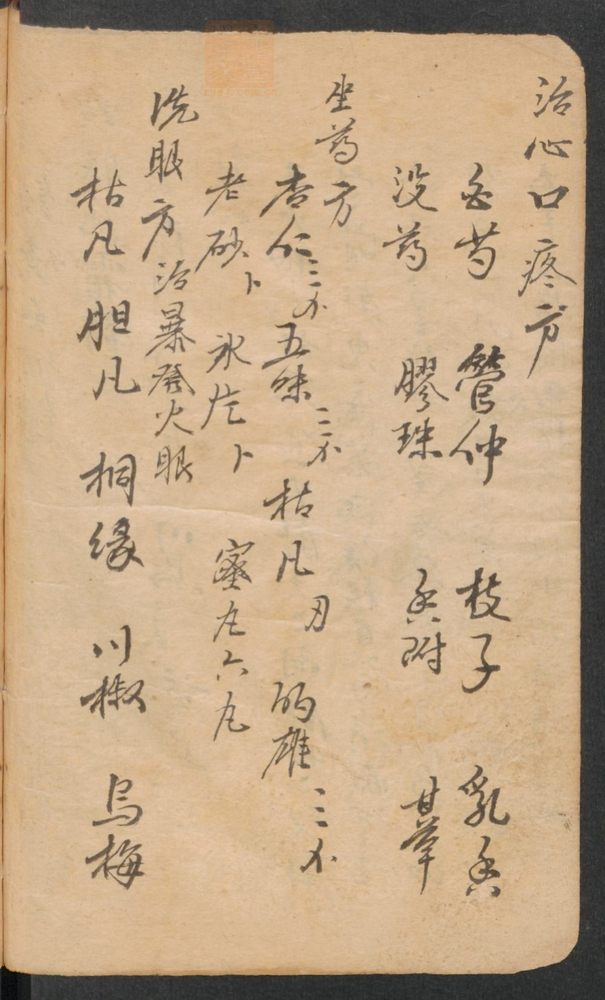 治心口疼方
白芍 管仲 枝子 乳香
没药 膠珠 香附 甘草
坐药方
杏仁三个 五味三个 枯凡刃 的雄三个
老砂卜 氷片卜 蜜丸六丸
洗眼方治暴發火眼
枯凡 胆凡 桐缘 川椒 烏梅